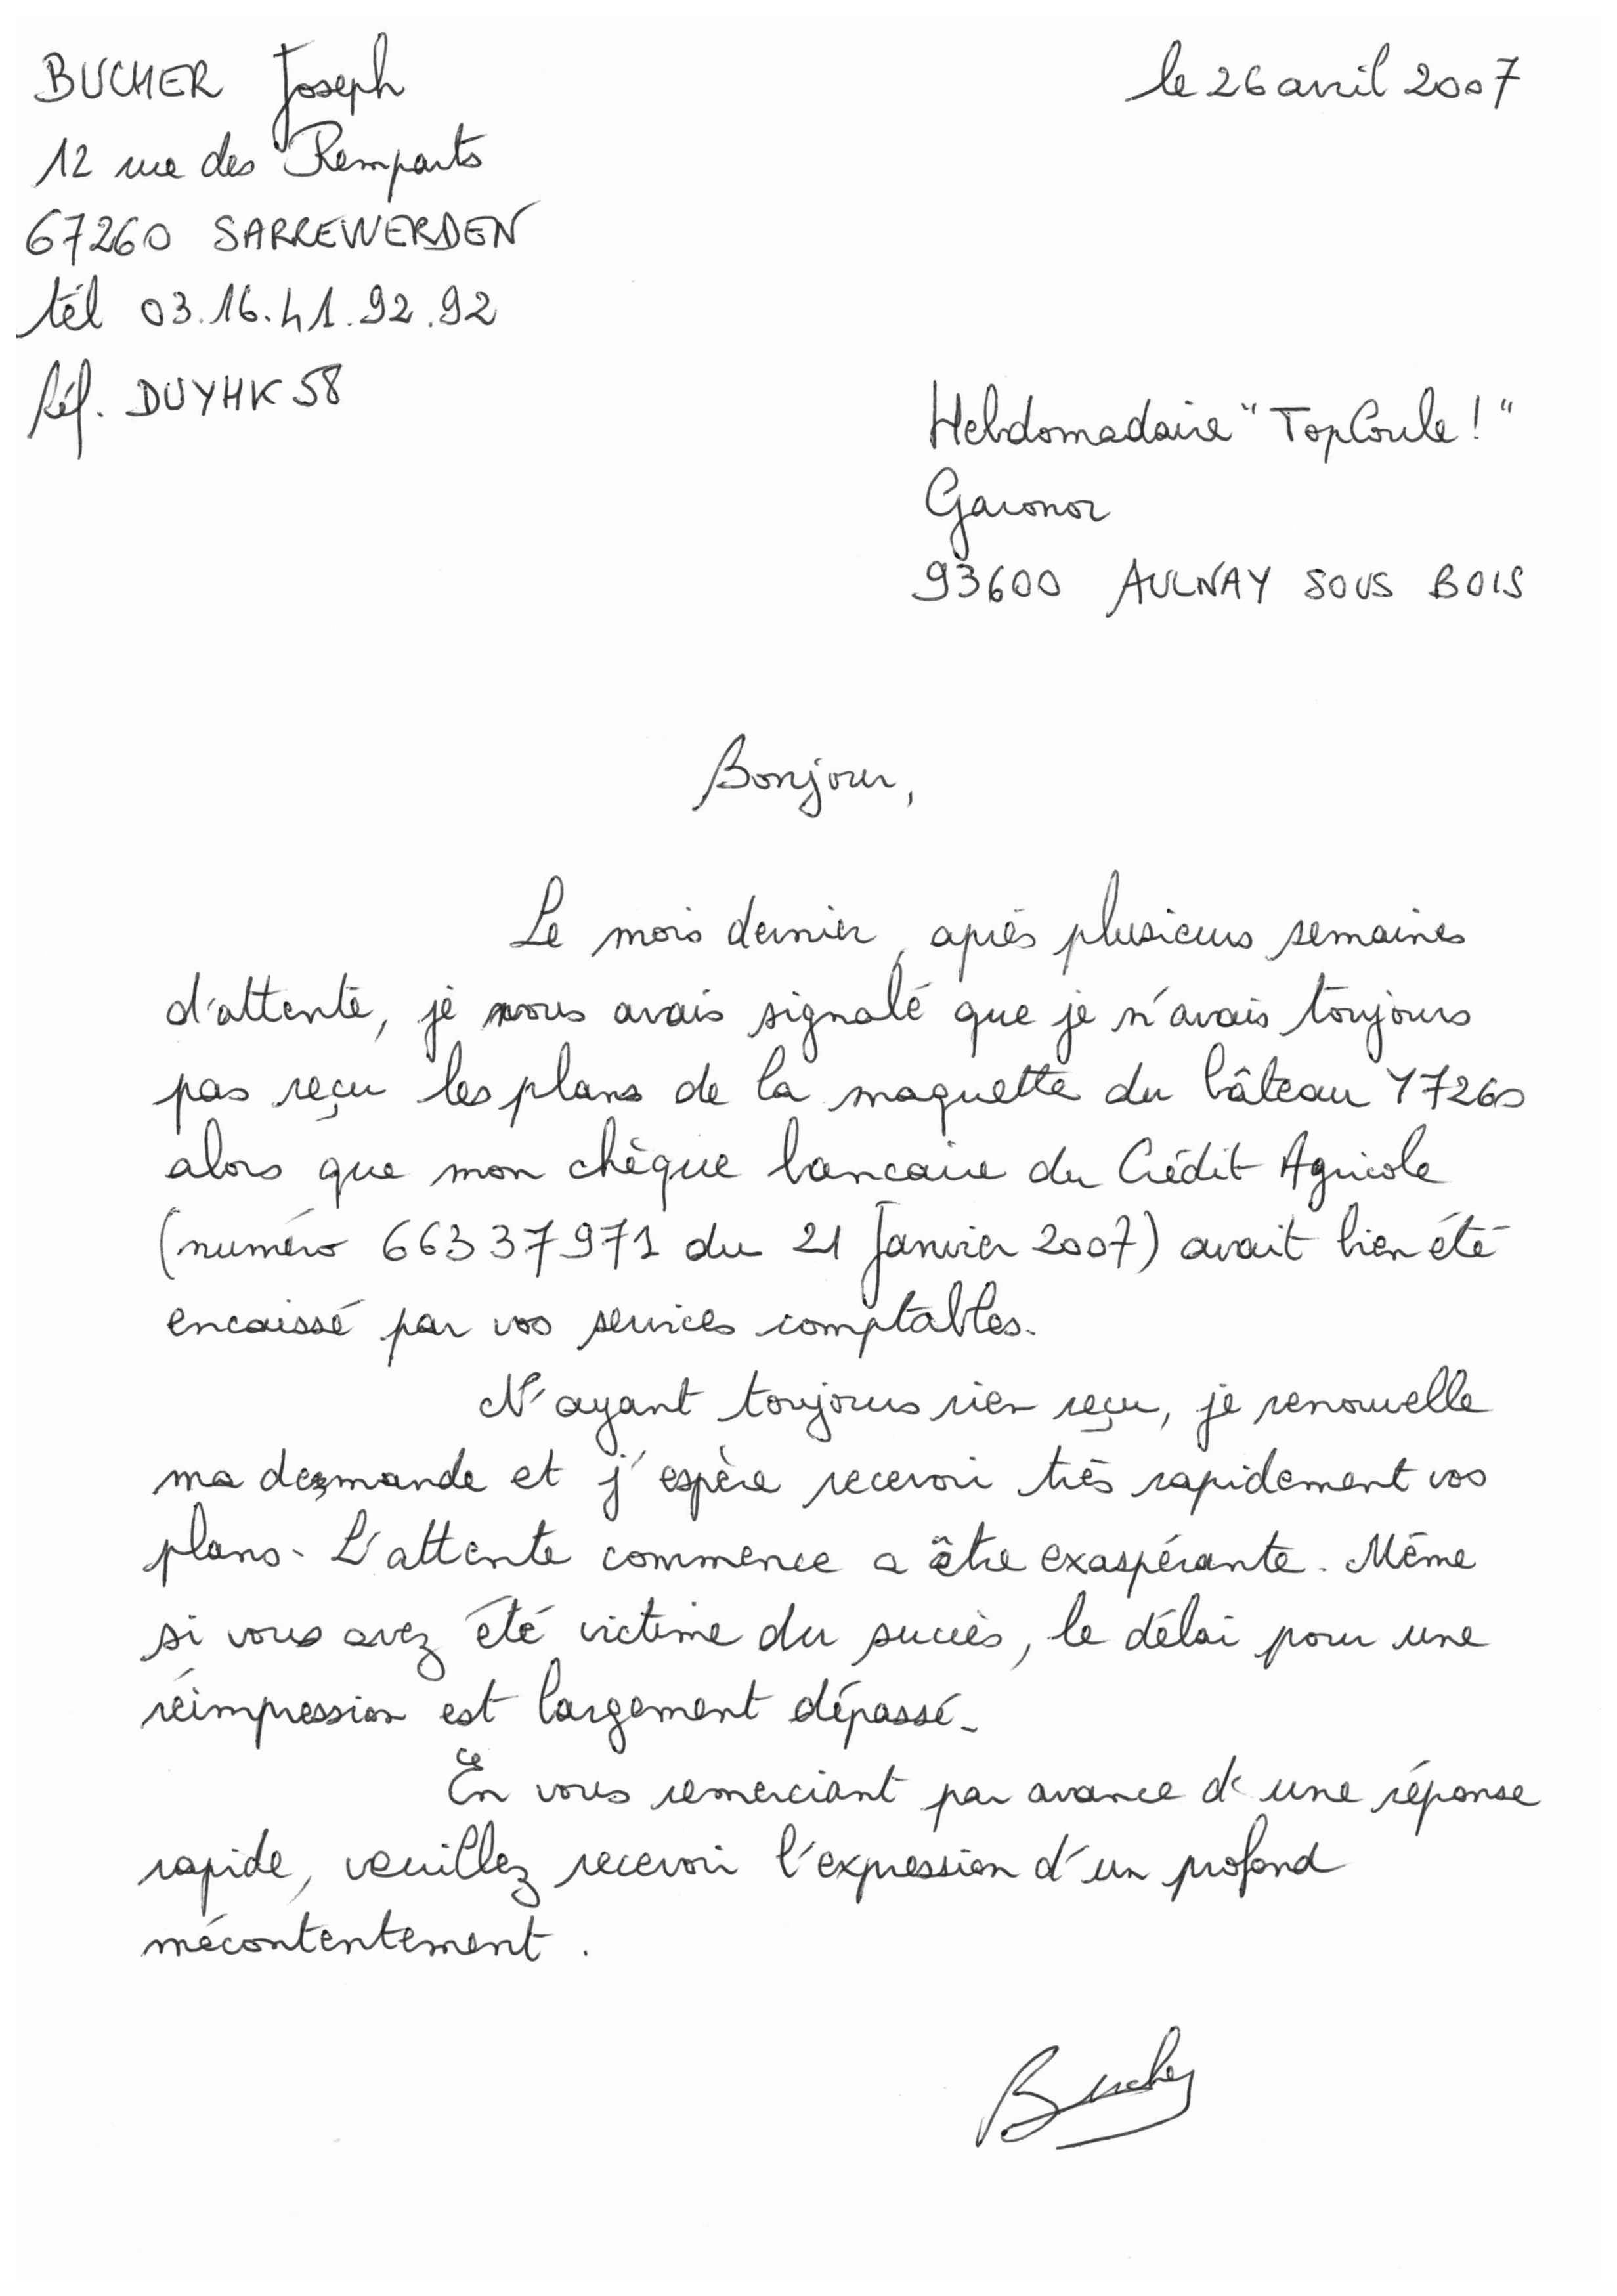 BUCHER Joseph
le 26 avril 2007
12 rue des Remparts
67260 SARREWERDEN
tél 03.16.41.92.92
Réf. DUYHK58
Hebdomadaire "TopCoule!"
Garonor
93600 AULNAY SOUS BOIS
Bonjour,
Le mois dernier, après plusieurs semaines
d'attente, je vous avais signalé que je n'avais toujours
pas reçu les plans de la maquette du bâteau Y7260
alors que mon chèque bancaire du Crédit Agricole
(numéro 66337971 du 21 Janvier 2007) avait bien été
encaissé par vos services comptables.
N'ayant toujours rien reçu, je renouvelle
ma demande et j'espère recevoir très rapidement vos
plans. L'attente commence a être exaspérante. Même
si vous avez été victime du succès, le délai pour une
réimpression est largement dépassé.
En vous remerciant par avance d'une réponse
rapide, veuillez recevoir l'expression d'un profond
mécontentement.
Bucher